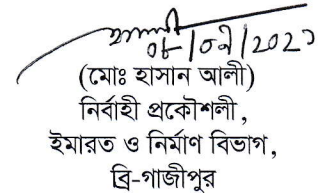 ০৮/০৭/২০২১
(মোঃ হাসান আলী)
নির্বাহী প্রকৌশলী,
ইমারত ও নির্মাণ বিভাগ,
ব্রি-গাজীপুর